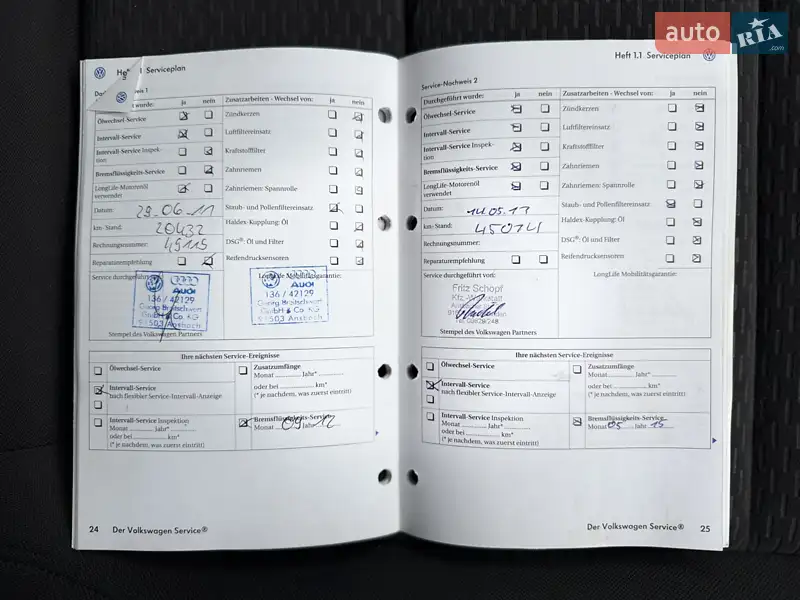 auto RIA .com
Serviceplan
Durchgeführt wurde: ja nein
Ölwechsel-Service
Intervall-Service
Intervall-Service Inspek-
tion
Bremsflüssigkeits-Service
LongLife-Motorenöl
verwendet
Datum: 29.06.11
km-Stand: 20432
Rechnungsnummer: 49119
Reparaturempfehlung
Zusatzarbeiten - Wechsel von: ja nein
Zündkerzen
Luftfiltereinsatz
Kraftstofffilter
Zahnriemen
Zahnriemen: Spannrolle
Staub- und Pollenfiltereinsatz
Haldex-Kupplung: Öl
DSG®: Öl und Filter
Reifendrucksensoren
Service durchgeführt
LongLife Mobilitätsgarantie:
Audi
136 / 42129
Georg Breitschwert
GmbH & Co. KG
91503 Ansbach
Audi
136 / 42129
Georg Breitschwert
GmbH & Co. KG
91503 Ansbach
Stempel des Volkswagen Partners
Ihre nächsten Service-Ereignisse
Ölwechsel-Service
Intervall-Service
nach flexibler Service-Intervall-Anzeige
Intervall-Service Inspektion
Monat Jahr*
oder bei km*
(* je nachdem, was zuerst eintritt)
Zusatzumfänge
Monat Jahr*
oder bei km*
(* je nachdem, was zuerst eintritt)
Bremsflüssigkeits-Service
Monat 09 Jahr 12
24 Der Volkswagen Service®
Heft 1.1 Serviceplan
Service-Nachweis 2
Durchgeführt wurde: ja nein
Ölwechsel-Service
Intervall-Service
Intervall-Service Inspek-
tion
Bremsflüssigkeits-Service
LongLife-Motorenöl
verwendet
Datum: 14.05.13
km-Stand: 45074
Rechnungsnummer:
Reparaturempfehlung
Zusatzarbeiten - Wechsel von: ja nein
Zündkerzen
Luftfiltereinsatz
Kraftstofffilter
Zahnriemen
Zahnriemen: Spannrolle
Staub- und Pollenfiltereinsatz
Haldex-Kupplung: Öl
DSG®: Öl und Filter
Reifendrucksensoren
Service durchgeführt von:
LongLife Mobilitätsgarantie:
Fritz Schopf
Stempel des Volkswagen Partners
Ihre nächsten Service-Ereignisse
Ölwechsel-Service
Intervall-Service
nach flexibler Service-Intervall-Anzeige
Intervall-Service Inspektion
Monat Jahr*
oder bei km*
(* je nachdem, was zuerst eintritt)
Zusatzumfänge
Monat Jahr*
oder bei km*
(* je nachdem, was zuerst eintritt)
Bremsflüssigkeits-Service
Monat 05 Jahr 15
Der Volkswagen Service® 25